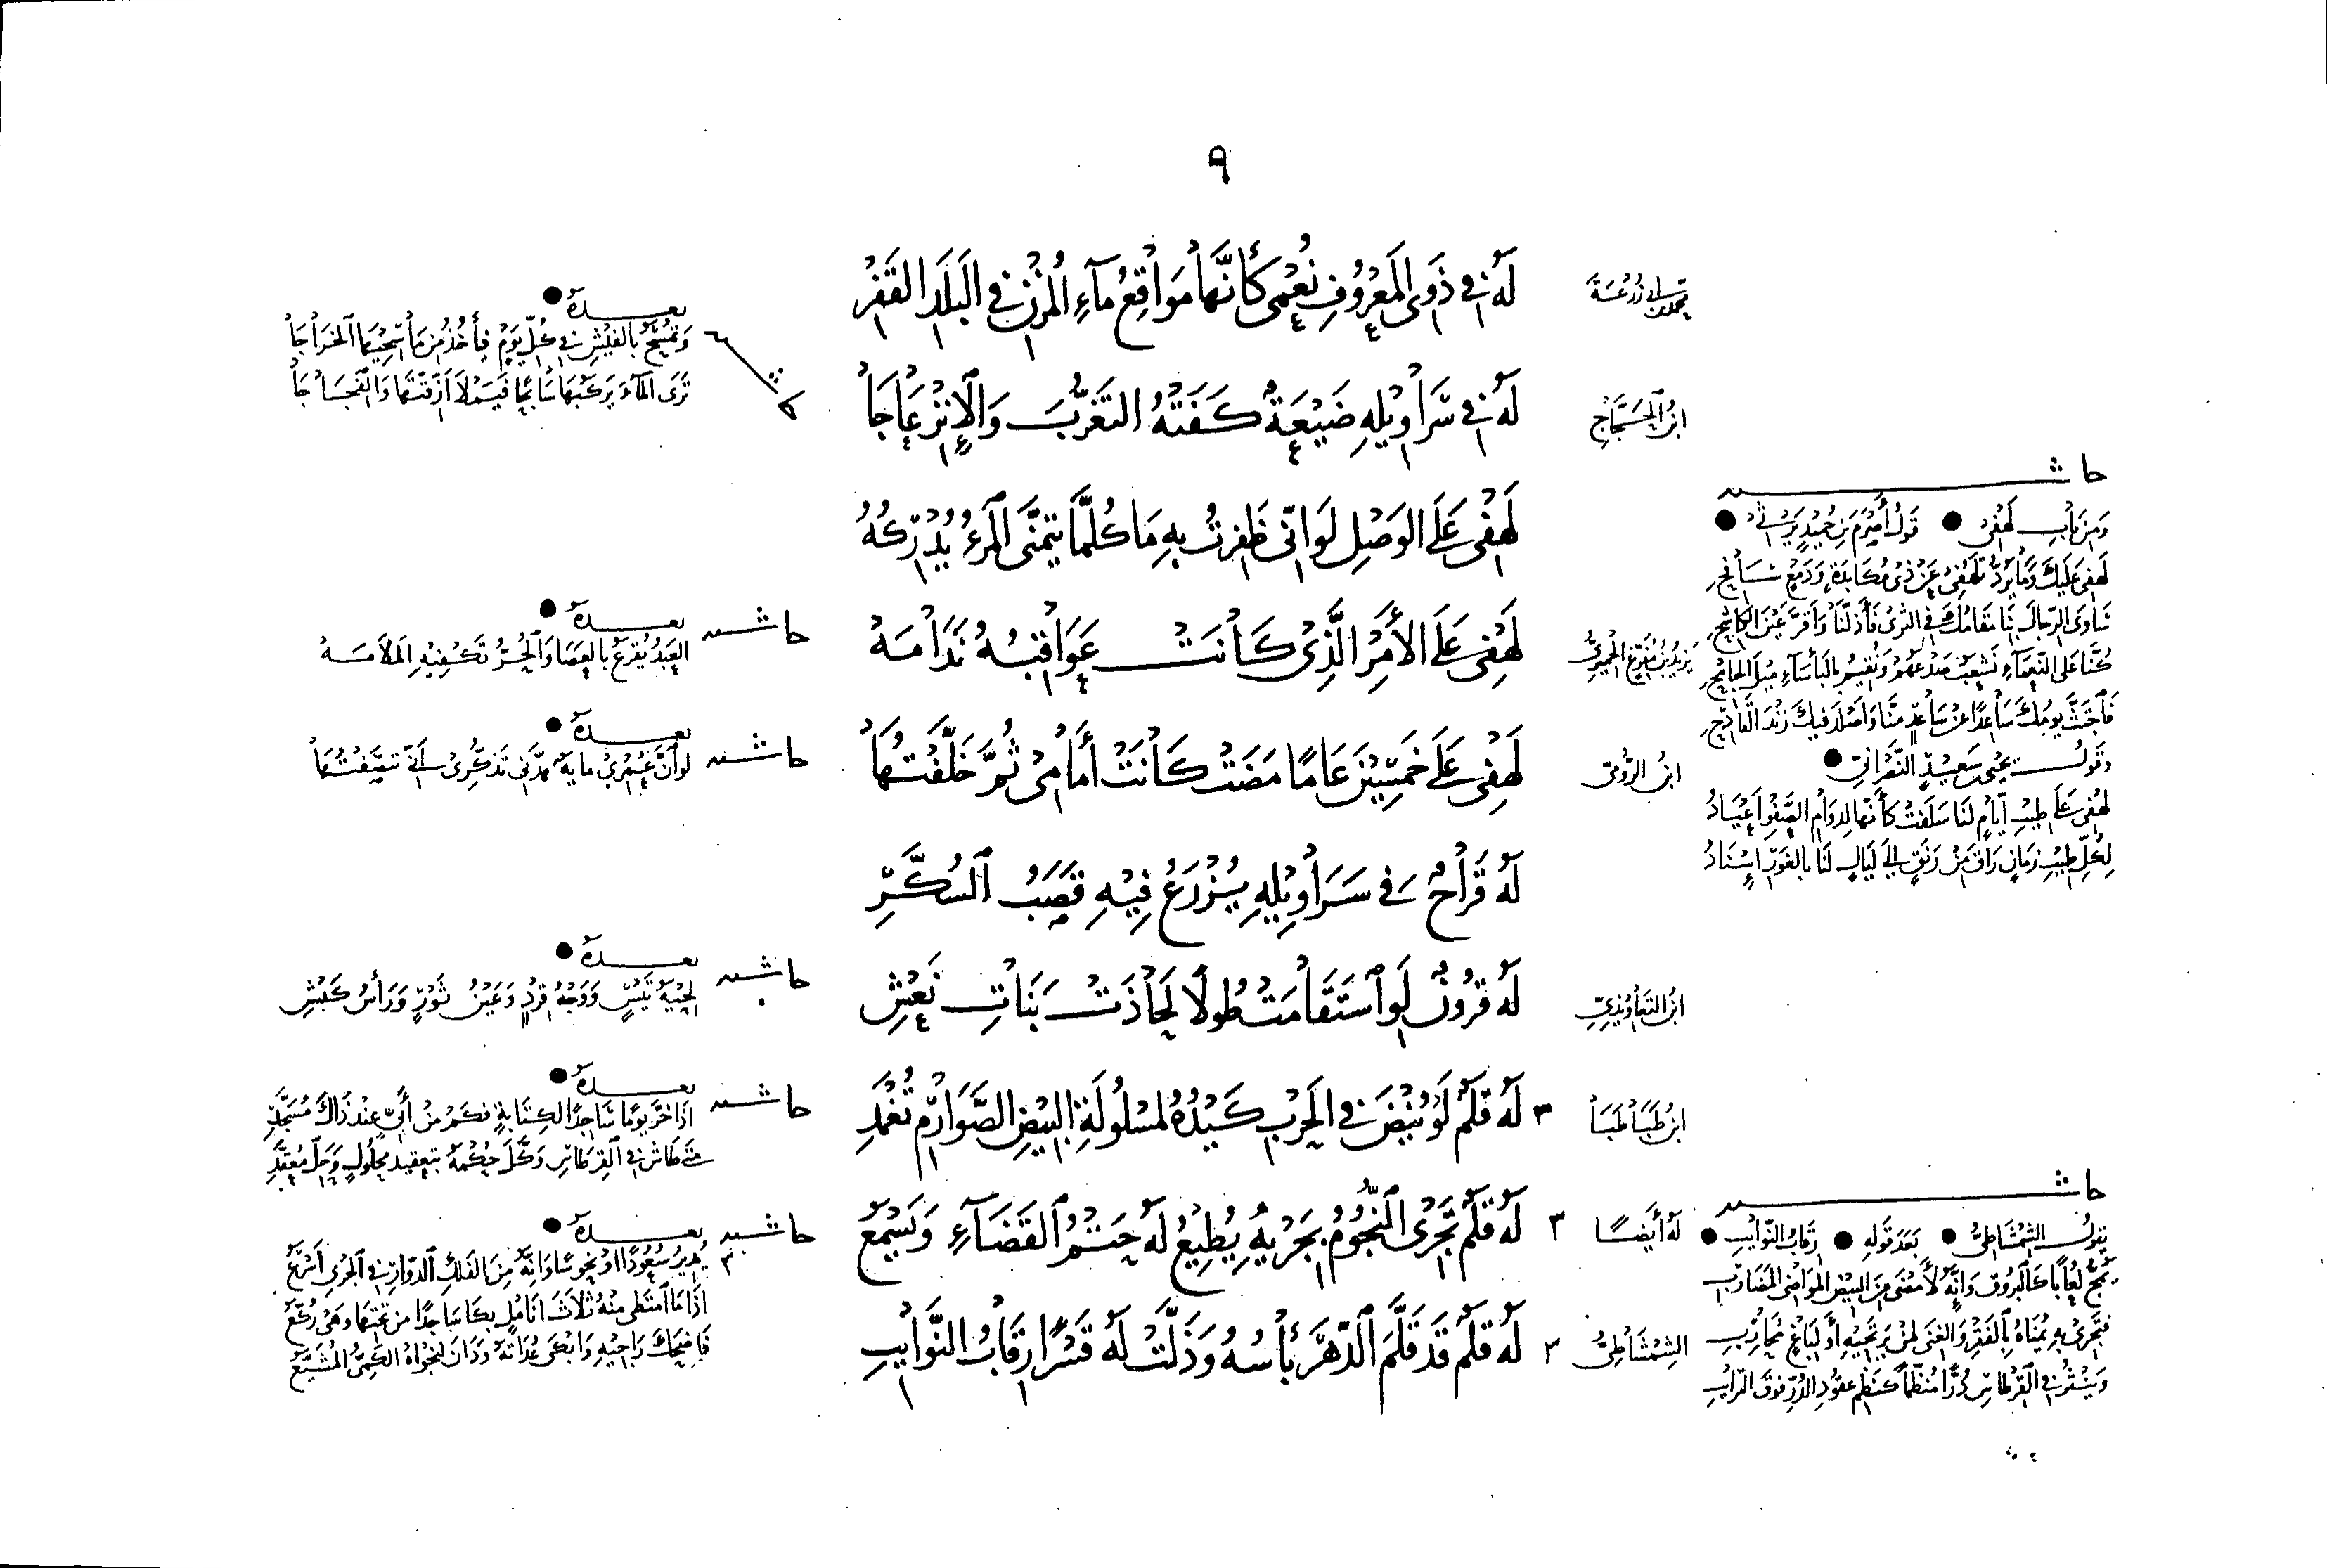 ٩
محمد بن أبي زرعة
لَهُ فِي ذَوِي المَعْرُوفِ نُعْمَى كَأَنَّهَا مَوَاقِعُ مَاءِ المُزْنِ فِي البَلَدِ القَفْرِ
ابنُ الحَجَّاجِ
لَهُ فِي سَرَاوِيلِهِ ضَيْعَةٌ كَفَتْهُ التَغَرُّبَ وَالإِنْزِعَاجَا
حاشية
بعده
في كُلِّ يَوْمٍ
تَرَى المَاءَ يَرْكَبُهَا
لَهْفِي عَلَى الوَصْلِ لَوْ انِّي ظَفِرتُ بِهِ مَا كُلَّمَا يَتَمَنَّى المَرْءُ يُدْرِكُهُ
يَزِيدُ بنُ مُفَرِّغِ الحِمْيَرِيُّ
لَهْفِي عَلَى الأَمْرِ الَّذِي كَانَتْ عَوَاقِبُهُ نَدَامَهْ
حاشية
بعده
العَبْدُ يُقْرَعُ بِالعَصَا وَالحُرُّ تَكْفِيهِ المَلَامَهْ
ابنُ الرُّومِي
لَهْفِي عَلَى خَمْسِينَ عَامًا مَضَتْ كَانَتْ أَمَامِي ثُمَّ خَلَّفْتُهَا
حاشية
بعده
لَوْ أَنَّ عُمْرِي مِايَةٌ هَدَّنِي تَذَكُّرِي أَنِّي تَنَصَّفْتُهَا
لَهُ قَرَاحٌ فِي سَرَاوِيلِهِ يُزْرَعُ فِيهِ قَصَبُ السُّكَّرِ
ابنُ التَعَاوِيذِيِّ
لَهُ قُرُونٌ لَوِ اسْتَقَامَتْ طُولًا لَحَاذَتْ بَنَاتِ نَعْشِ
حاشية
بعده
لِحْيَةُ تَيْسٍ وَوَجْهُ قِرْدٍ وَعَيْنُ ثَوْرٍ وَرَأْسُ كَبْشِ
ابنُ طَبَاطَبَا
٣ لَهُ قَلَمٌ لَوْ يُنْتَضَ فِي الحَرْبِ كَيْدُهُ لمَسْلُولَةِ البِيضِ الصَّوَارِمِ تُغْمَدِ
حاشية
بعده
اذَا خَرَّ يَوْمًا سَاجِدًا لِكِتَابَةٍ فَكَمْ مِنْ أَبِيٍّ عِنْدَ ذَاكَ مُسَجَّدِ
مَتَى طَاشَ فِي القِرْطَاسِ وَكَّلَ حِكْمَةً بِتَعْقِيدِ مَحْلُولٍ وَحَلِّ مُعَقَّدِ
لَهُ أَيْضًا
٣ لَهُ قَلَمٌ تَجْرِي النُّجُومُ بِجَرْيِهِ يُطِيعُ لَهُ حَتْمُ القَضَاءِ وَيَسْمَعُ
حاشية
بعده
يُدِيرُ سُعُودًا اوْ نُحُوسًا وَانَّهُ مِنَ الفَلَكِ الدَوَّارِ فِي الجَرْيِ أَسْرَعُ
اذَا مَا امْتَطَى مِنْهُ ثَلَاثَ انَامِلٍ بَكَا سَاجِدًا مِنْ تَحْتِهَا وَهْيَ رُكَّعُ
فَأَضْحَكَ رَاجِيهِ وَابْكَى عُدَاتَهُ وَدَانَ لِنَجْوَاهُ الكَمِيُّ المُشَيَّعُ
الشِمْشَاطِيُّ
٣ لَهُ قَلَمٌ قَدْ قَلَّمَ الدَّهْرَ بَأْسُهُ وَذَلَّتْ لَهُ قَسْرًا رِقَابُ النَّوَايِبِ
حاشية
وَمِن بَابِ لَهْفِي قَوْلُ
لَهْفِي عَلَيْكَ وَمَا يَرُدُّ تَلَهُّفِي عَنْ ذِي مُكَابَدَةٍ وَدَمْعٍ سَافِحِ
سَاوَى الرِّجَالُ بِنَا مَقَامُكَ فِي الثَّرَى فَأَذَلَّنَا وَأَقَرَّ عَيْنَ الكَاشِحِ
كُنَّا عَلَى النَّعْمَاءِ
سَاعِدًا عَنْ سَاعِدٍ مِنَّا وَاصْلَدَ فِيكَ زَنْدَ القَادِحِ
وَقَوْلُ يَحْيَى سَعِيدٍ النَّصْرَانِيِّ
لَهْفِي عَلَى طِيبِ أَيَّامٍ لَنَا سَلَفَتْ كَأَنَّهَا لِدَوَامِ الصَّفْوِ أَعْيَادُ
حاشية
يَقُولُ الشِمْشَاطِيُّ بَعْدَ قَوْلِهِ رِقَابُ النَّوَايِبِ
يَمُجُّ لُعَابًا كَالبُرُوقِ وَإِنَّهُ لَأَمْضَى مِنَ البِيضِ المَوَاضِي المَضَارِبِ
فَتَجْرِي بِهِ يُمْنَاهُ بِالفَقْرِ وَالغِنَى لِمَنْ يَرْتَجِيهِ أَوْ لِبَاغٍ مُحَارِبِ
وَيَنْثُرُ فِي القِرْطَاسِ دُرًّا مُنَظَّمًا كَنَظْمِ عُقُودِ الدُرِّ فَوْقَ التَرَايِبِ